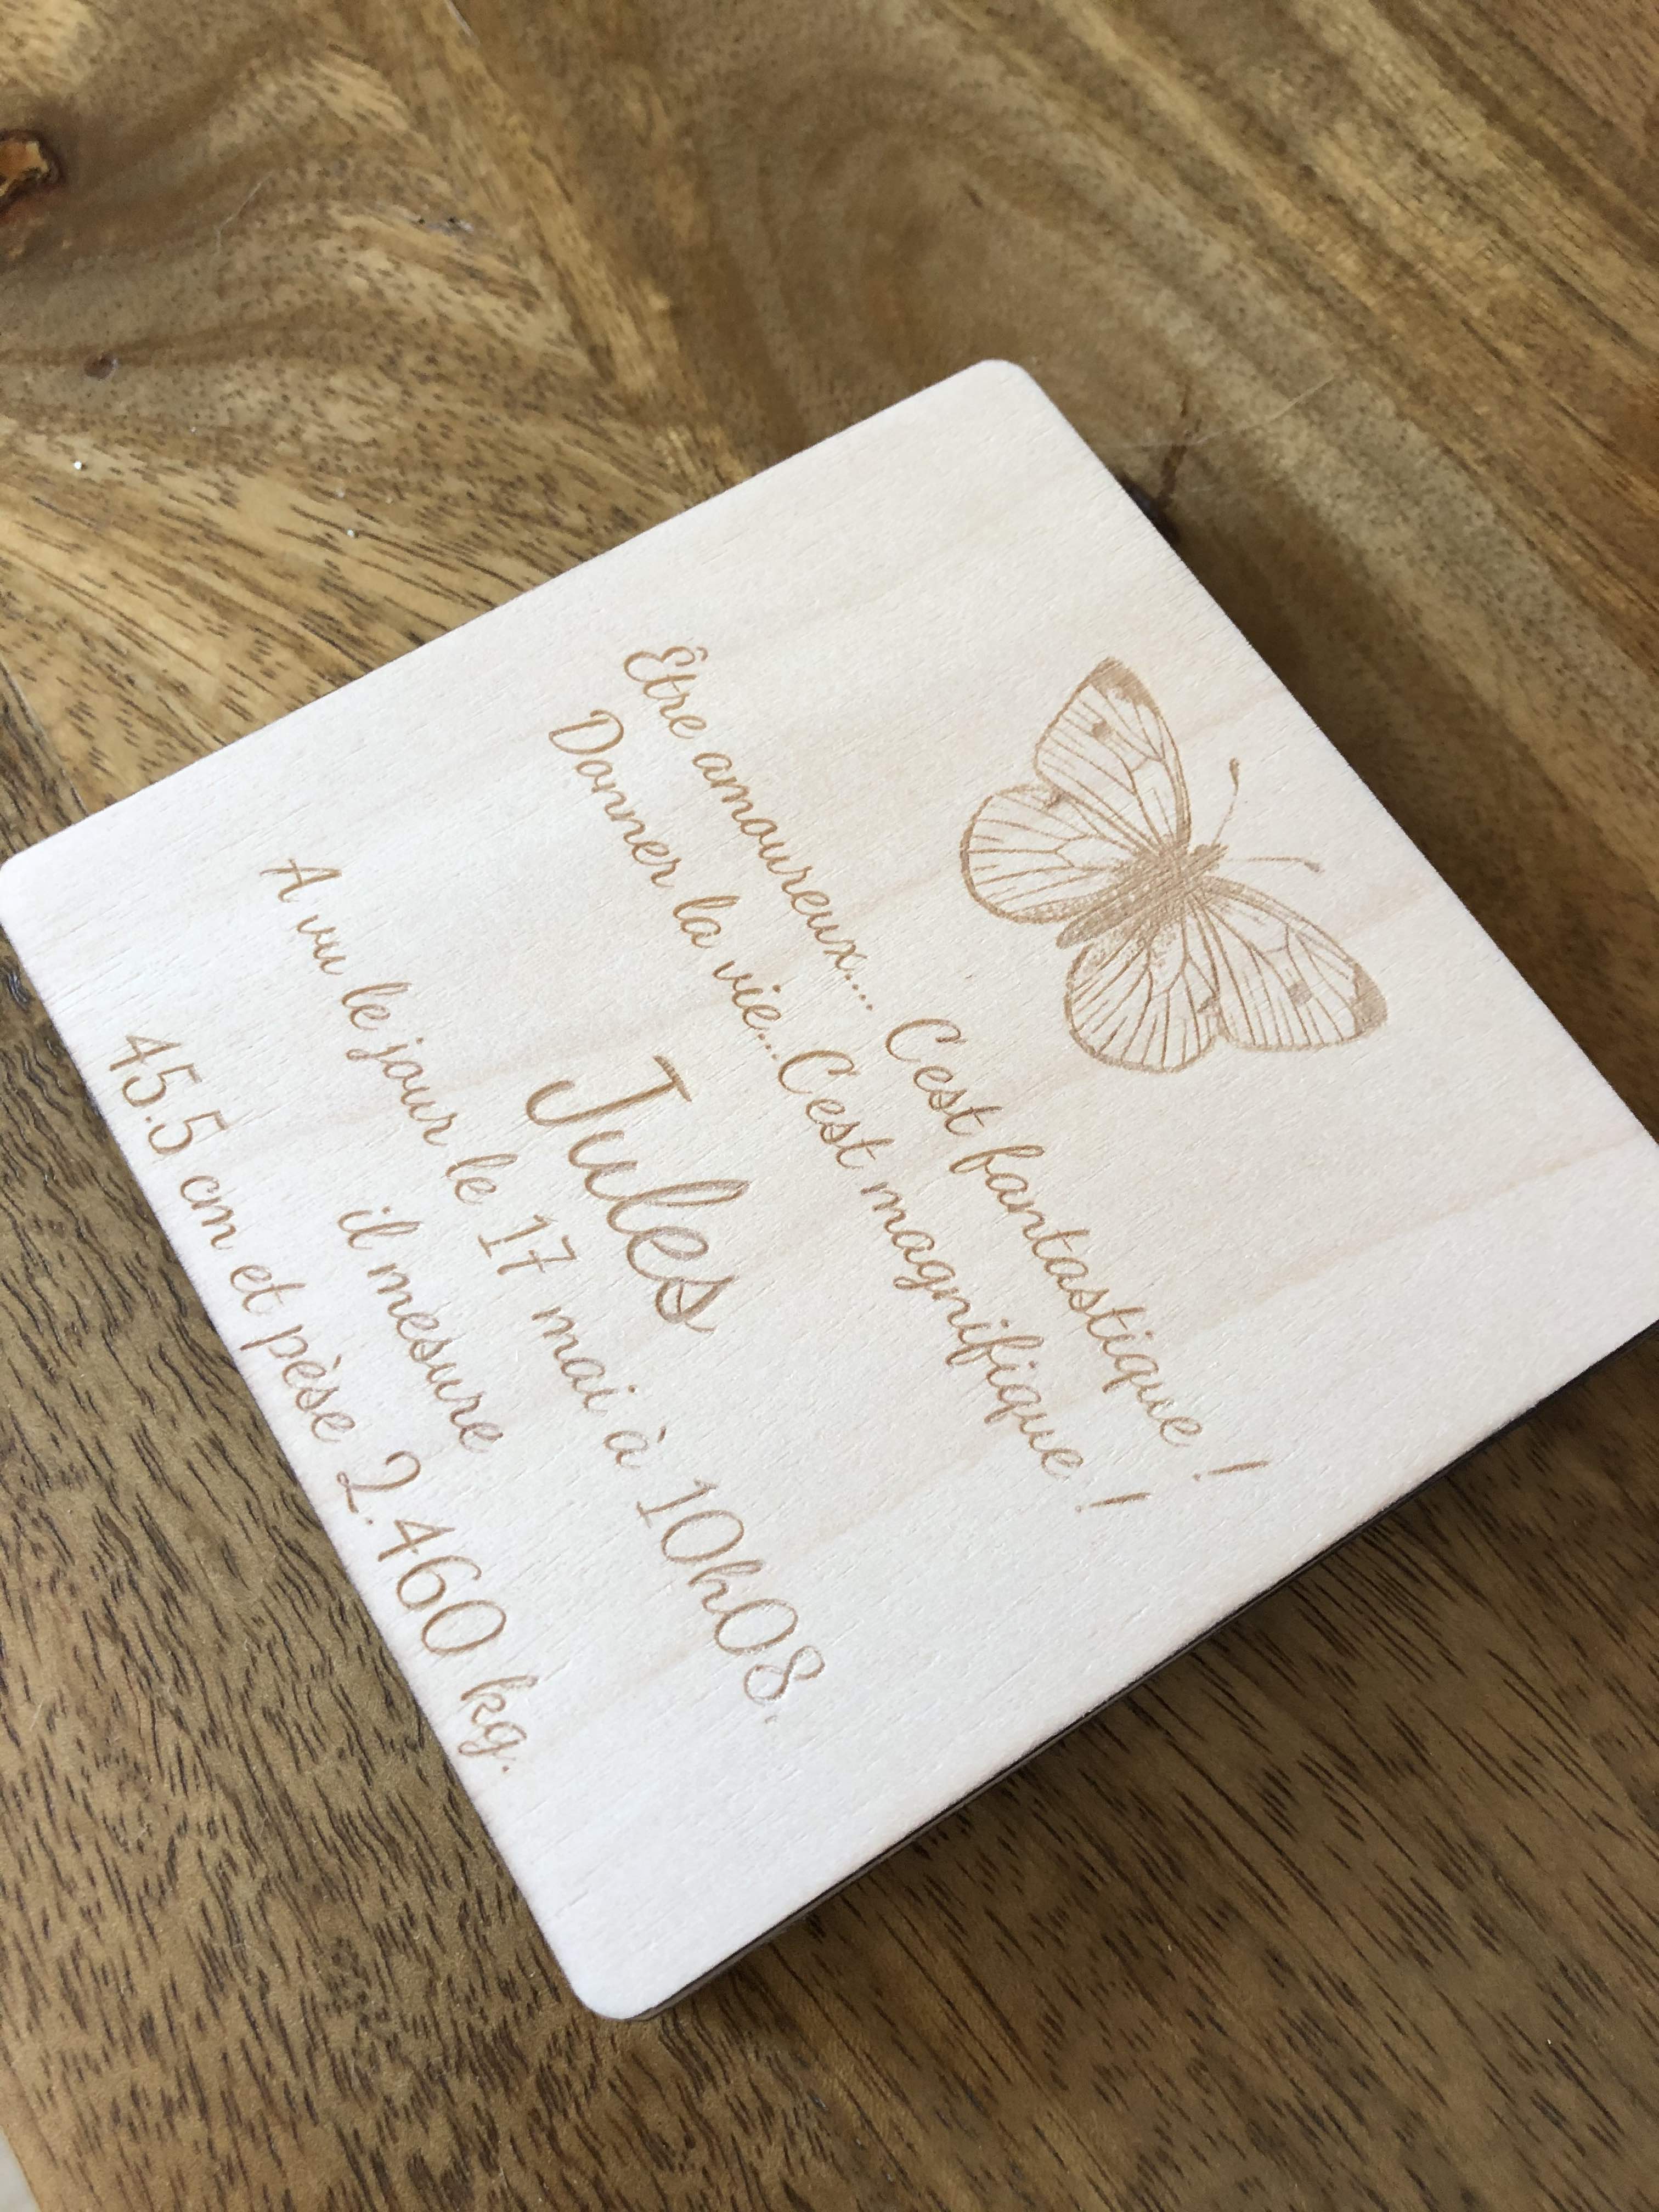 Être amoureux.... C'est fantastique !
Donner la vie...C'est magnifique !
Jules
A vu le jour le 17 mai à 10h08.
il mesure
45.5 cm et pèse 2.460 kg.